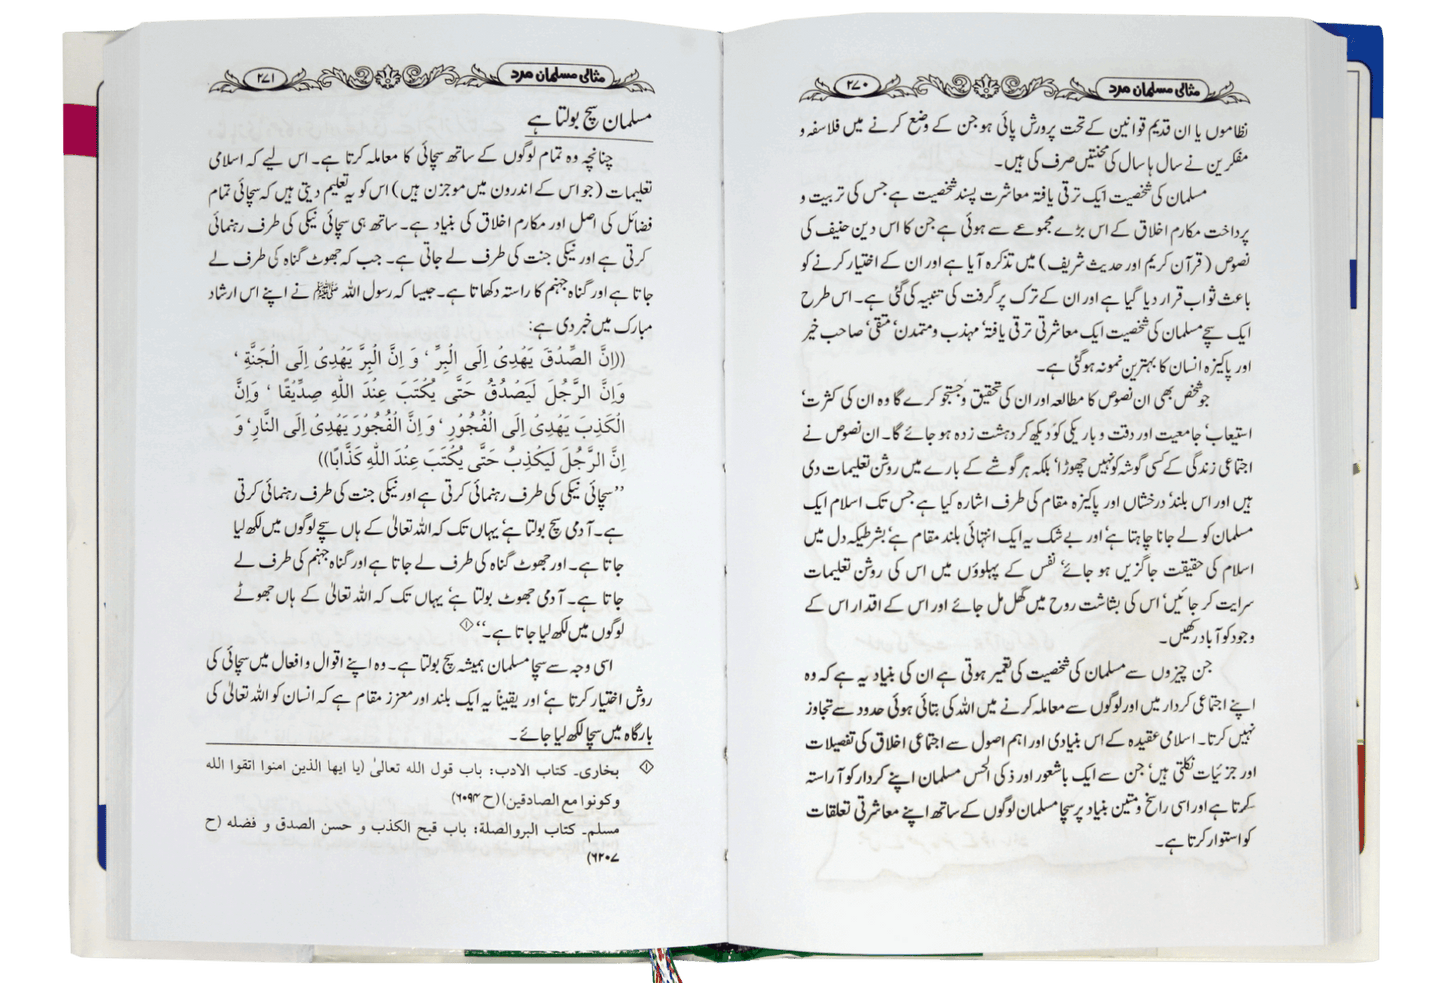 مثالی مسلمان مرد ۲۷۰
نظاموں یا ان قدیم قوانین کے تحت پرورش پائی ہو جن کے وضع کرنے میں فلاسفہ و
مفکرین نے سال ہا سال کی محنتیں صرف کی ہیں۔
مسلمان کی شخصیت ایک ترقی یافتہ معاشرت پسند شخصیت ہے جس کی تربیت و
پرداخت مکارم اخلاق کے اس بڑے مجموعے سے ہوئی ہے جن کا اس دین حنیف کی
نصوص (قرآن کریم اور حدیث شریف) میں تذکرہ آیا ہے اور ان کے اختیار کرنے کو
باعث ثواب قرار دیا گیا ہے اور ان کے ترک پر گرفت کی تنبیہ کی گئی ہے۔ اس طرح
ایک سچے مسلمان کی شخصیت ایک معاشرتی ترقی یافتہ‘ مہذب و متمدن‘ متقی‘ صاحب خیر
اور پاکیزہ انسان کا بہترین نمونہ ہو گئی ہے۔
جو شخص بھی ان نصوص کا مطالعہ اور ان کی تحقیق و جستجو کرے گا وہ ان کی کثرت‘
استیعاب‘ جامعیت اور دقت و باریکی کو دیکھ کر دہشت زدہ ہو جائے گا۔ ان نصوص نے
اجتماعی زندگی کے کسی گوشہ کو نہیں چھوڑا‘ بلکہ ہر گوشے کے بارے میں روشن تعلیمات دی
ہیں اور اس بلند‘ درخشاں اور پاکیزہ مقام کی طرف اشارہ کیا ہے جس تک اسلام ایک
مسلمان کو لے جانا چاہتا ہے‘ اور بے شک یہ ایک انتہائی بلند مقام ہے‘ بشرطیکہ دل میں
اسلام کی حقیقت جاگزیں ہو جائے‘ نفس کے پہلوؤں میں اس کی روشن تعلیمات
سرایت کر جائیں‘ اس کی بشاشت روح میں گھل مل جائے اور اس کے اقدار اس کے
وجود کو آباد رکھیں۔
جن چیزوں سے مسلمان کی شخصیت کی تعمیر ہوتی ہے ان کی بنیاد یہ ہے کہ وہ
اپنے اجتماعی کردار میں اور لوگوں سے معاملہ کرنے میں اللہ کی بتائی ہوئی حدود سے تجاوز
نہیں کرتا۔ اسلامی عقیدہ کے اس بنیادی اور اہم اصول سے اجتماعی اخلاق کی تفصیلات
اور جزئیات نکلتی ہیں‘ جن سے ایک باشعور اور ذکی الحس مسلمان اپنے کردار کو آراستہ
کرتا ہے اور اسی راسخ و متین بنیاد پر سچا مسلمان لوگوں کے ساتھ اپنے معاشرتی تعلقات
کو استوار کرتا ہے۔
مثالی مسلمان مرد ۲۷۱
مسلمان سچ بولتا ہے
چنانچہ وہ تمام لوگوں کے ساتھ سچائی کا معاملہ کرتا ہے۔ اس لیے کہ اسلامی
تعلیمات (جو اس کے اندرون میں موجزن ہیں) اس کو یہ تعلیم دیتی ہیں کہ سچائی تمام
فضائل کی اصل اور مکارم اخلاق کی بنیاد ہے۔ ساتھ ہی سچائی نیکی کی طرف رہنمائی
کرتی ہے اور نیکی جنت کی طرف لے جاتی ہے۔ جب کہ جھوٹ گناہ کی طرف لے
جاتا ہے اور گناہ جہنم کا راستہ دکھاتا ہے۔ جیسا کہ رسول اللہ ﷺ نے اپنے اس ارشاد
مبارک میں خبر دی ہے:
((اِنَّ الصِّدْقَ يَهْدِىْ اِلَى الْبِرِّ ‘ وَ اِنَّ الْبِرَّ يَهْدِىْ اِلَى الْجَنَّةِ ‘
وَاِنَّ الرَّجُلَ لَيَصْدُقُ حَتّٰى يُكْتَبَ عِنْدَ اللّٰهِ صِدِّيْقًا ‘ وَاِنَّ
الْكَذِبَ يَهْدِىْ اِلَى الْفُجُوْرِ ‘ وَ اِنَّ الْفُجُوْرَ يَهْدِىْ اِلَى النَّارِ‘ وَ
اِنَّ الرَّجُلَ لَيَكْذِبُ حَتّٰى يُكْتَبَ عِنْدَ اللّٰهِ كَذَّابًا))
’’سچائی نیکی کی طرف رہنمائی کرتی ہے اور نیکی جنت کی طرف رہنمائی کرتی
ہے۔ آدمی سچ بولتا ہے‘ یہاں تک کہ اللہ تعالیٰ کے ہاں سچے لوگوں میں لکھ لیا
جاتا ہے۔ اور جھوٹ گناہ کی طرف لے جاتا ہے اور گناہ جہنم کی طرف لے
جاتا ہے۔ آدمی جھوٹ بولتا ہے‘ یہاں تک کہ اللہ تعالیٰ کے ہاں جھوٹے
لوگوں میں لکھ لیا جاتا ہے۔‘‘ ①
اسی وجہ سے سچا مسلمان ہمیشہ سچ بولتا ہے۔ وہ اپنے اقوال و افعال میں سچائی کی
روش اختیار کرتا ہے‘ اور یقیناً یہ ایک بلند اور معزز مقام ہے کہ انسان کو اللہ تعالیٰ کی
بارگاہ میں سچا لکھ لیا جائے۔
① بخاری۔ کتاب الادب: باب قول الله تعالیٰ (يا ايها الذين امنوا اتقوا الله
وكونوا مع الصادقين) (ح ۶۰۹۴)
مسلم۔ کتاب البروالصلة: باب قبح الكذب و حسن الصدق و فضله (ح
۶۶۰۷)